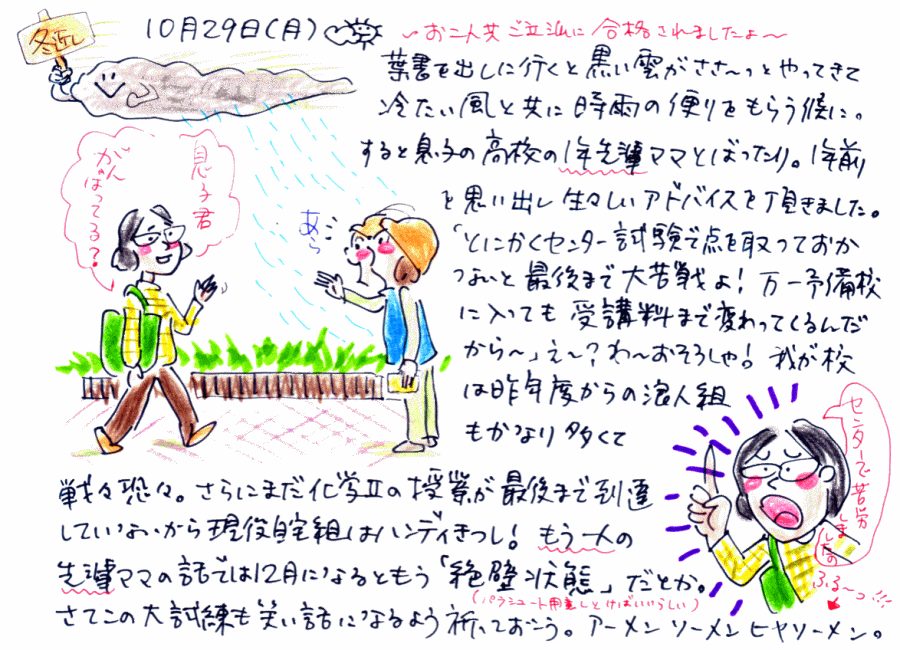 冬近し
10月29日(月)
おニ人共ご立派に合格されましたよ〜
葉書を出しに行くと黒い雲がささ〜っとやってきて
冷たい風と共に時雨の便りをもらう候に。
すると息子の高校の1年先輩ママとばったり。1年前
を思い出し生々しいアドバイスを頂きました。
「とにかくセンター試験で点を取っておか
ないと最後まで大苦戦よ!万一予備校
に入っても受講料まで変わってくるんだ
から〜」え〜?わ〜おそろしや!我が校
は昨年度からの浪人組
もかなり多くて
息子君
がんばってる?
あら
センターで苦労
しましたの
ふる〜っ!!!
戦々恐々。さらにまだ化学Ⅱの授業が最後まで到達
していないから現役自宅組はハンディきつし!もう一人の
先輩ママの話では12月になるともう「絶壁状態」だとか。
(パラシュート用意しとけばいいらしい)
さてこの大試練も笑い話になるよう祈っておこう。アーメンソーメンヒヤソーメン。